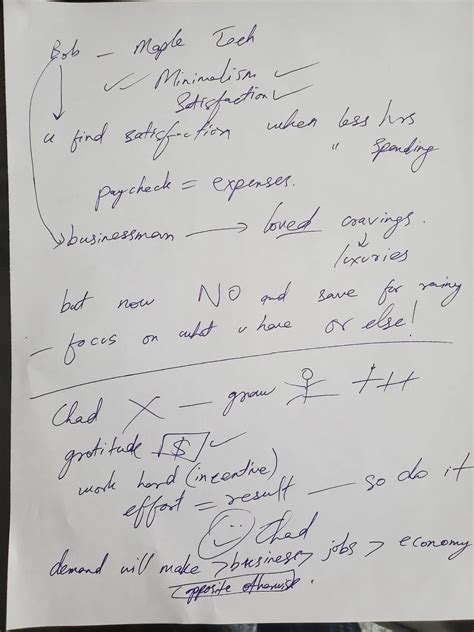 Bob — Maple Tech
✓✓ Minimalism ✓
Satisfaction ✓
u find satisfaction when less hrs
" spending
paycheck = expenses.
businessman → loved cravings.
luxuries
but now NO and save for rainy
— focus on what u have or else!
Chad X — grow
gratitude $ ✓
work hard (incentive)
effort = result — so do it
Chad
demand will make > business > jobs > economy
opposite otherwise.